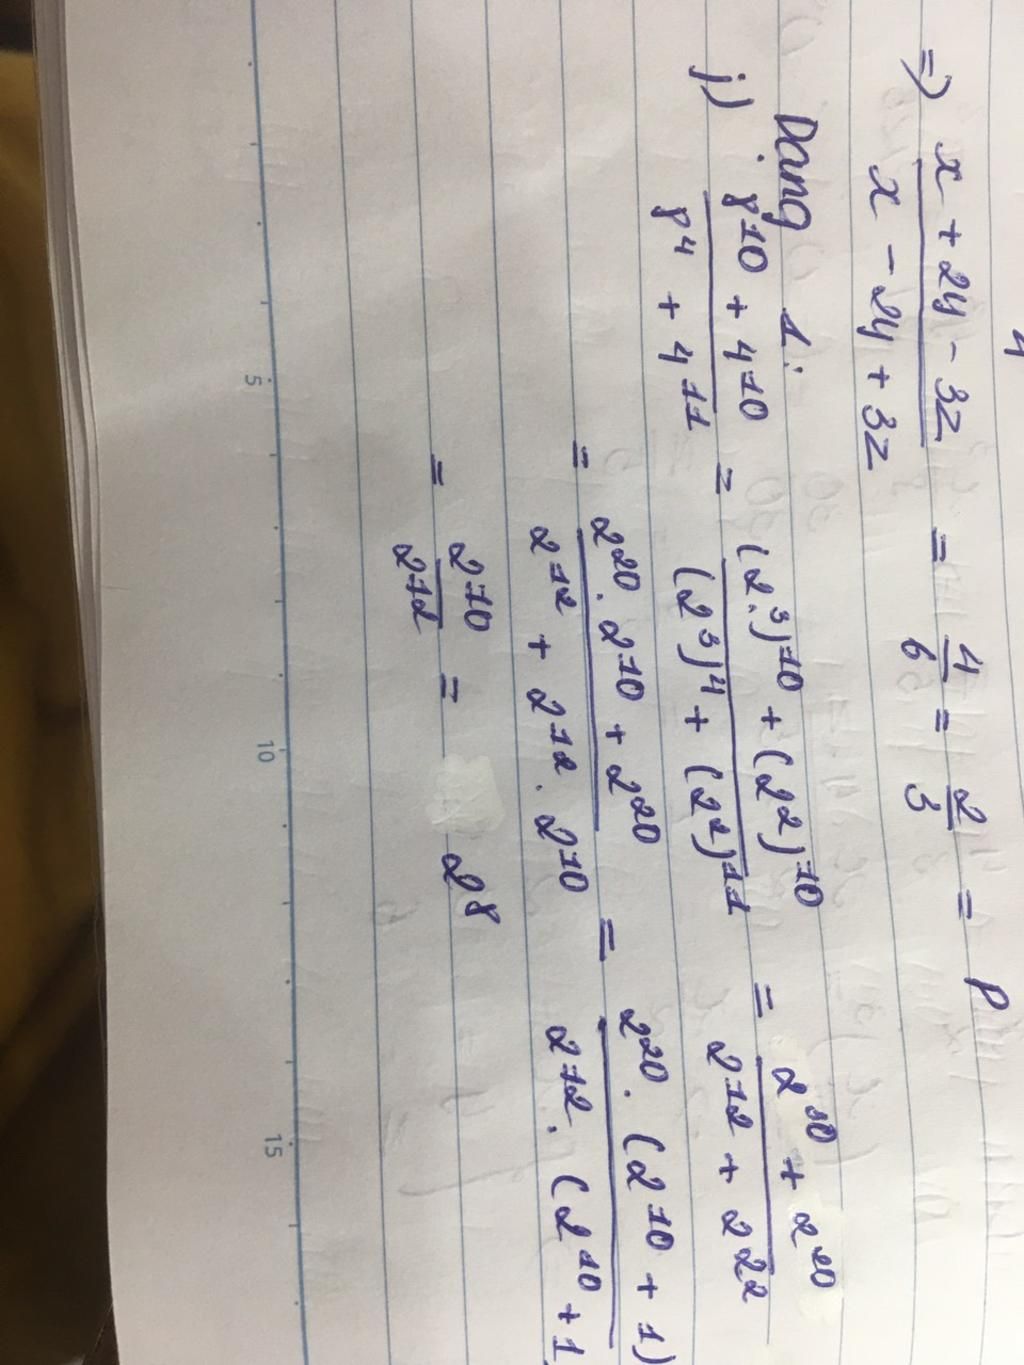 4
=> (x + 2y - 3z)/(x - 2y + 3z) = 4/6 = 2/3 = P
Dạng 1:
j) (8^10 + 4^10)/(8^4 + 4^11) = ((2^3)^10 + (2^2)^10)/((2^3)^4 + (2^2)^11) = (2^30 + 2^20)/(2^12 + 2^22)
= (2^20 . 2^10 + 2^20)/(2^12 + 2^12 . 2^10) = (2^20 . (2^10 + 1))/(2^12 . (2^10 + 1
= 2^10/2^12 = 2^8
5 10 15